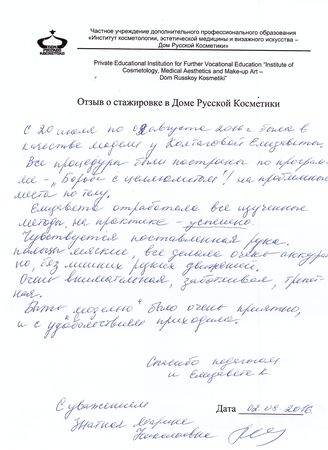 Частное учреждение дополнительного профессионального образования
«Институт косметологии, эстетической медицины и визажного искусства –
Дом Русской Косметики»
Private Educational Institution for Further Vocational Education "Institute of
Cosmetology, Medical Aesthetics and Make-up Art –
Dom Russkoy Kosmetiki"
Отзыв о стажировке в Доме Русской Косметики
С 20 июля по 02 августа 2016 г. была в
качестве модели у Елизаветы.
Все процедуры были построены по програм-
ме - „Борьба с целлюлитом"! на проблемные
места по телу.
Елизавета отработала все изученные
методы, на практике - успешно.
Чувствуется поставленная рука.
пальцы мягкие, все делала очень аккурат-
но, без лишних резких движений.
Очень внимательная, заботливая, трепет-
ная.
Быть „моделью" было очень приятно,
и с удовольствием приходила.
Спасибо педагогам
и Елизавете К.
С уважением
Марина
Николаевна
Дата 02.08.2016